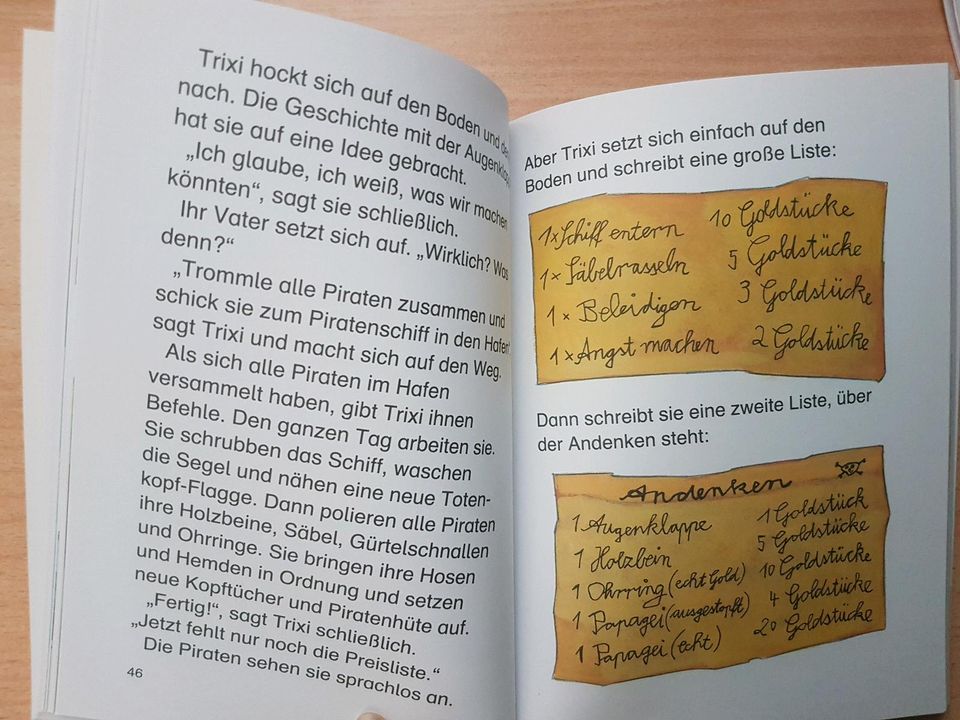 Trixi hockt sich auf den Boden und
nach. Die Geschichte mit der Augenklapp
hat sie auf eine Idee gebracht.
„Ich glaube, ich weiß, was wir machen
könnten“, sagt sie schließlich.
Ihr Vater setzt sich auf. „Wirklich? Was
denn?“
„Trommle alle Piraten zusammen und
schick sie zum Piratenschiff in den Hafen“,
sagt Trixi und macht sich auf den Weg.
Als sich alle Piraten im Hafen
versammelt haben, gibt Trixi ihnen
Befehle. Den ganzen Tag arbeiten sie.
Sie schrubben das Schiff, waschen
die Segel und nähen eine neue Toten-
kopf-Flagge. Dann polieren alle Piraten
ihre Holzbeine, Säbel, Gürtelschnallen
und Ohrringe. Sie bringen ihre Hosen
und Hemden in Ordnung und setzen
neue Kopftücher und Piratenhüte auf.
„Fertig!“, sagt Trixi schließlich.
„Jetzt fehlt nur noch die Preisliste.“
Die Piraten sehen sie sprachlos an.
46
Aber Trixi setzt sich einfach auf den
Boden und schreibt eine große Liste:
1 x Schiff entern 10 Goldstücke
1 x Säbelrasseln 5 Goldstücke
1 x Beleidigen 3 Goldstücke
1 x Angst machen 2 Goldstücke
Dann schreibt sie eine zweite Liste, über
der Andenken steht:
Andenken
1 Augenklappe 1 Goldstück
1 Holzbein 5 Goldstücke
1 Ohrring (echt Gold) 10 Goldstücke
1 Papagei (ausgestopft) 4 Goldstücke
1 Papagei (echt) 20 Goldstücke